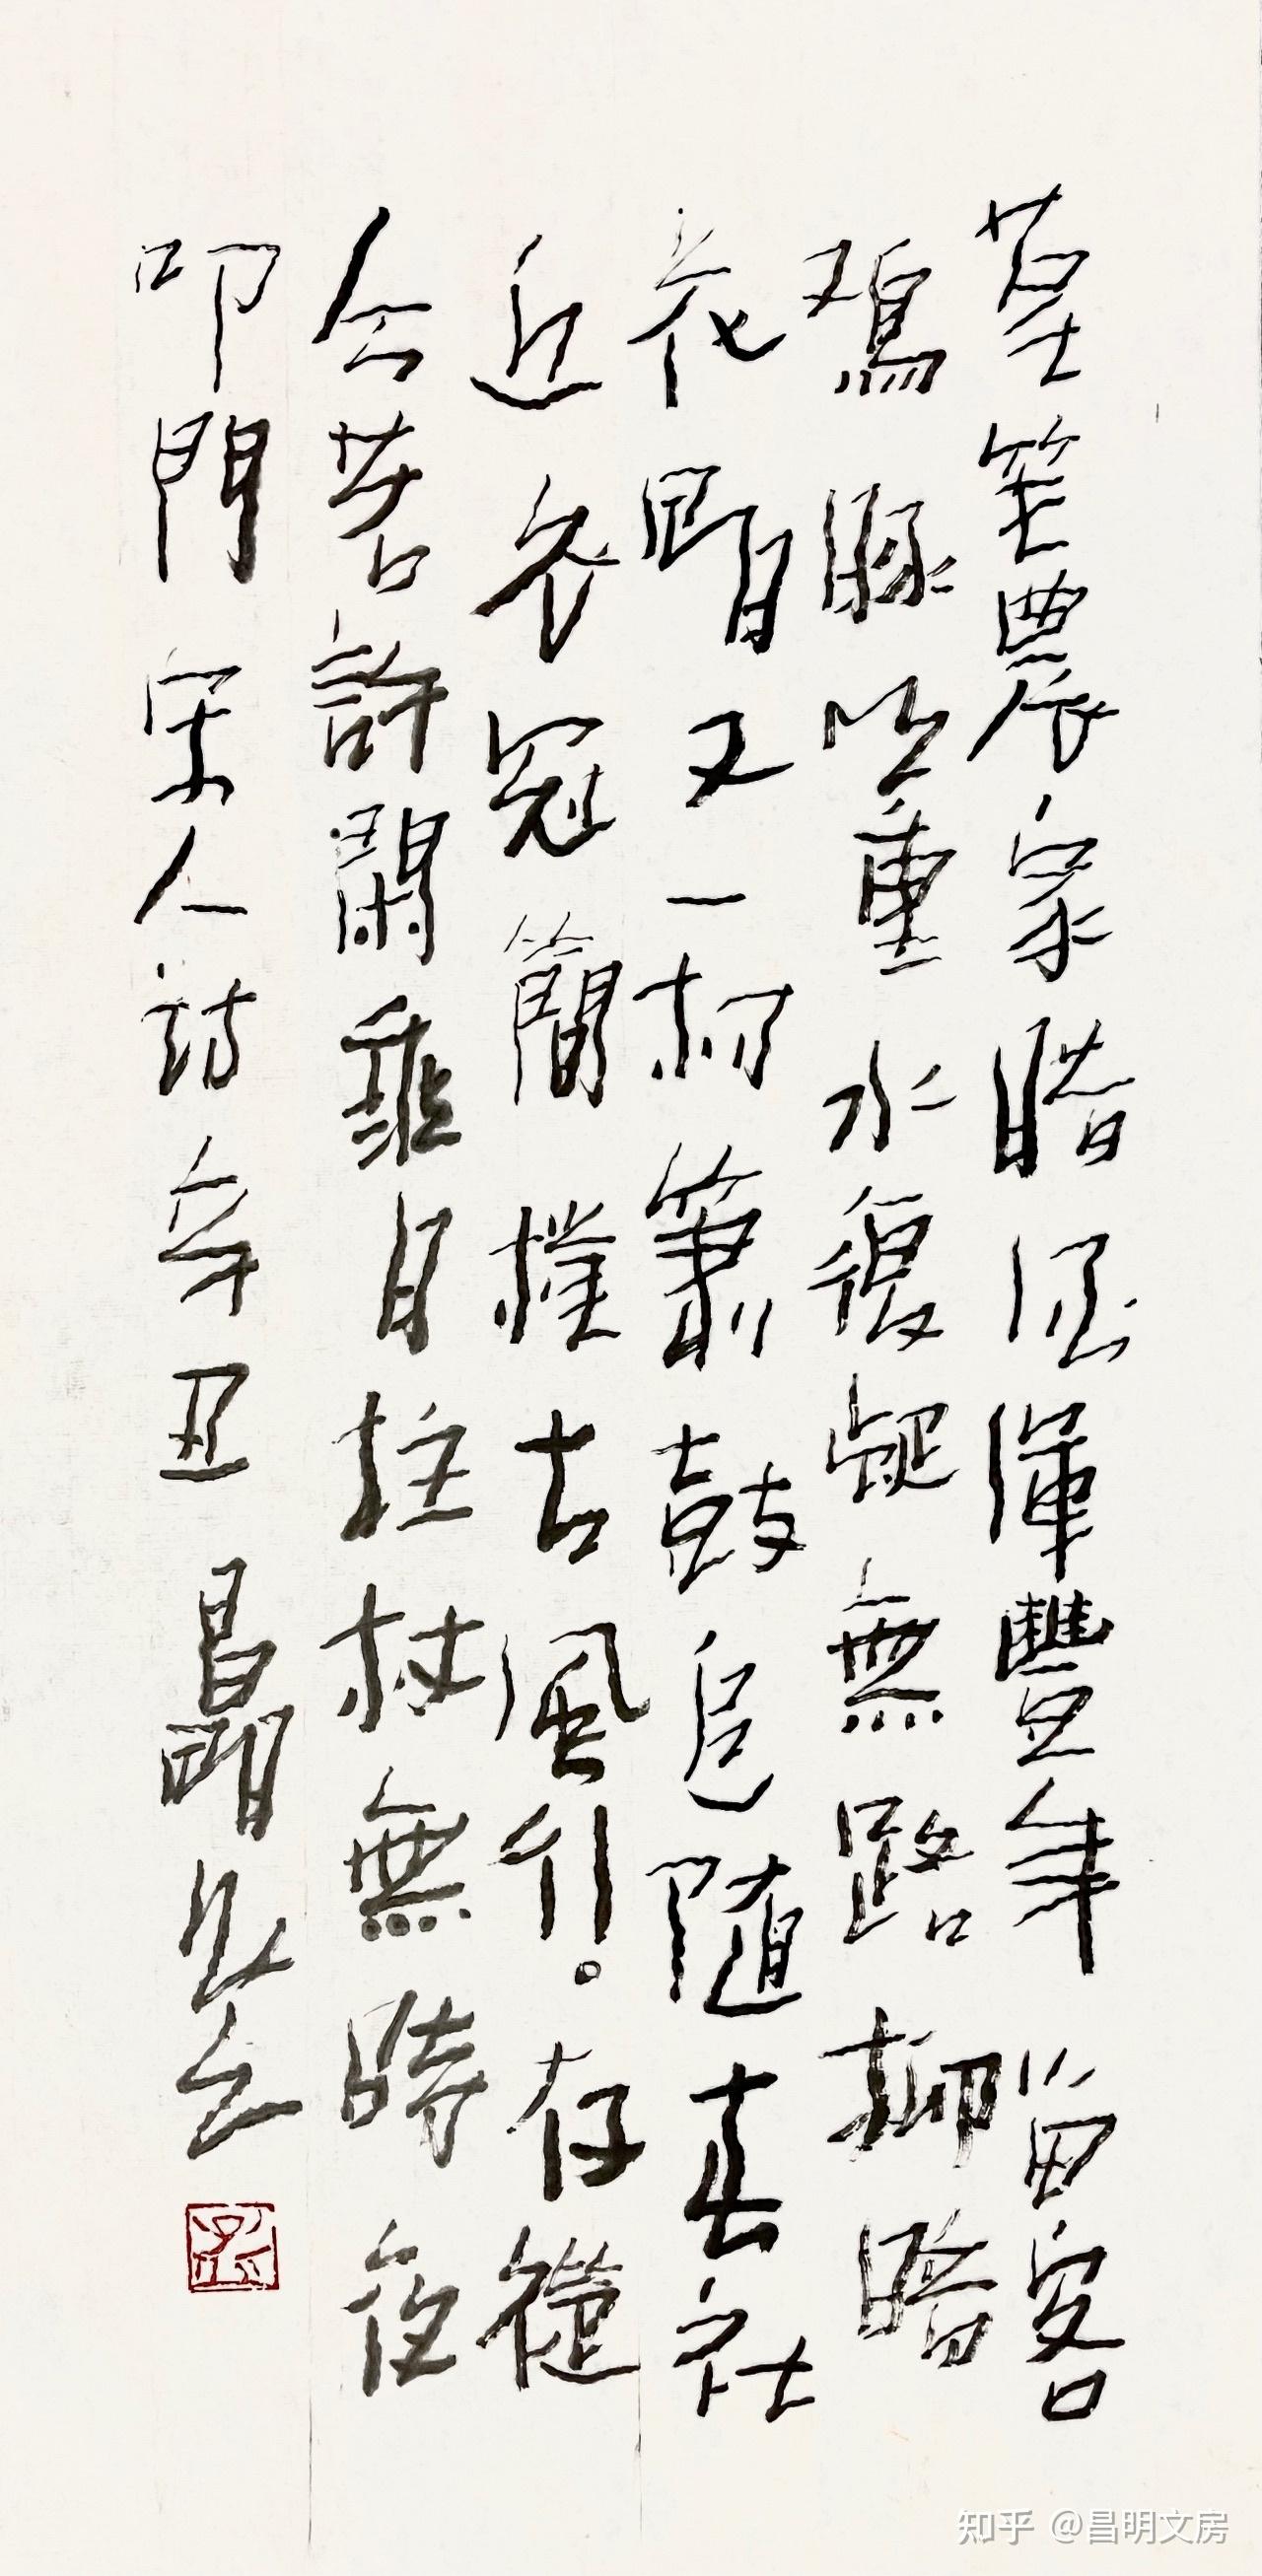 莫笑農家腊酒渾豐年留客
鷄豚山重水復疑無路柳暗
花明又一村簫鼓追隨春社
近衣冠簡樸古風存從
今若許閑乘月拄杖無時夜
叩門宋人詩辛丑昌明
知乎 @昌明文房